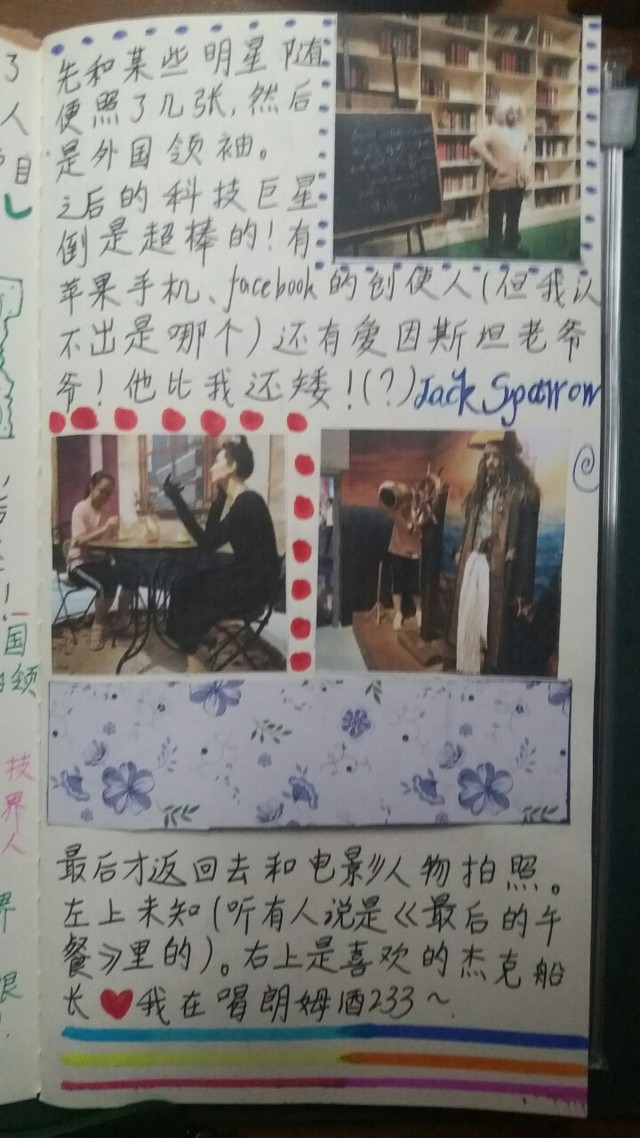 先和某些明星随
便照了几张,然后
是外国领袖。
之后的科技巨星
倒是超棒的!有
苹果手机、facebook的创使人(但我认
不出是哪个)还有爱因斯坦老爷
爷!他比我还矮!(?)Jack Sparrow
最后才返回去和电影人物拍照。
左上未知(听有人说是《最后的午
餐》里的)。右上是喜欢的杰克船
长❤我在喝朗姆酒233~.
了
人
目
国
领
技
界
人
界